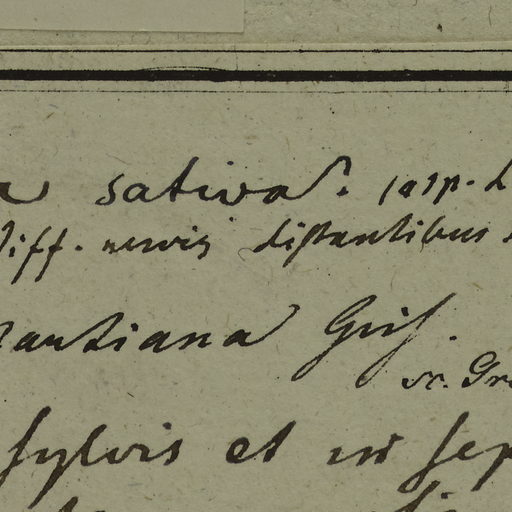 a sativa. (asp. L
diff. nervis distantibus
antiana Gris.
sc. Gr
sylvis et in sep